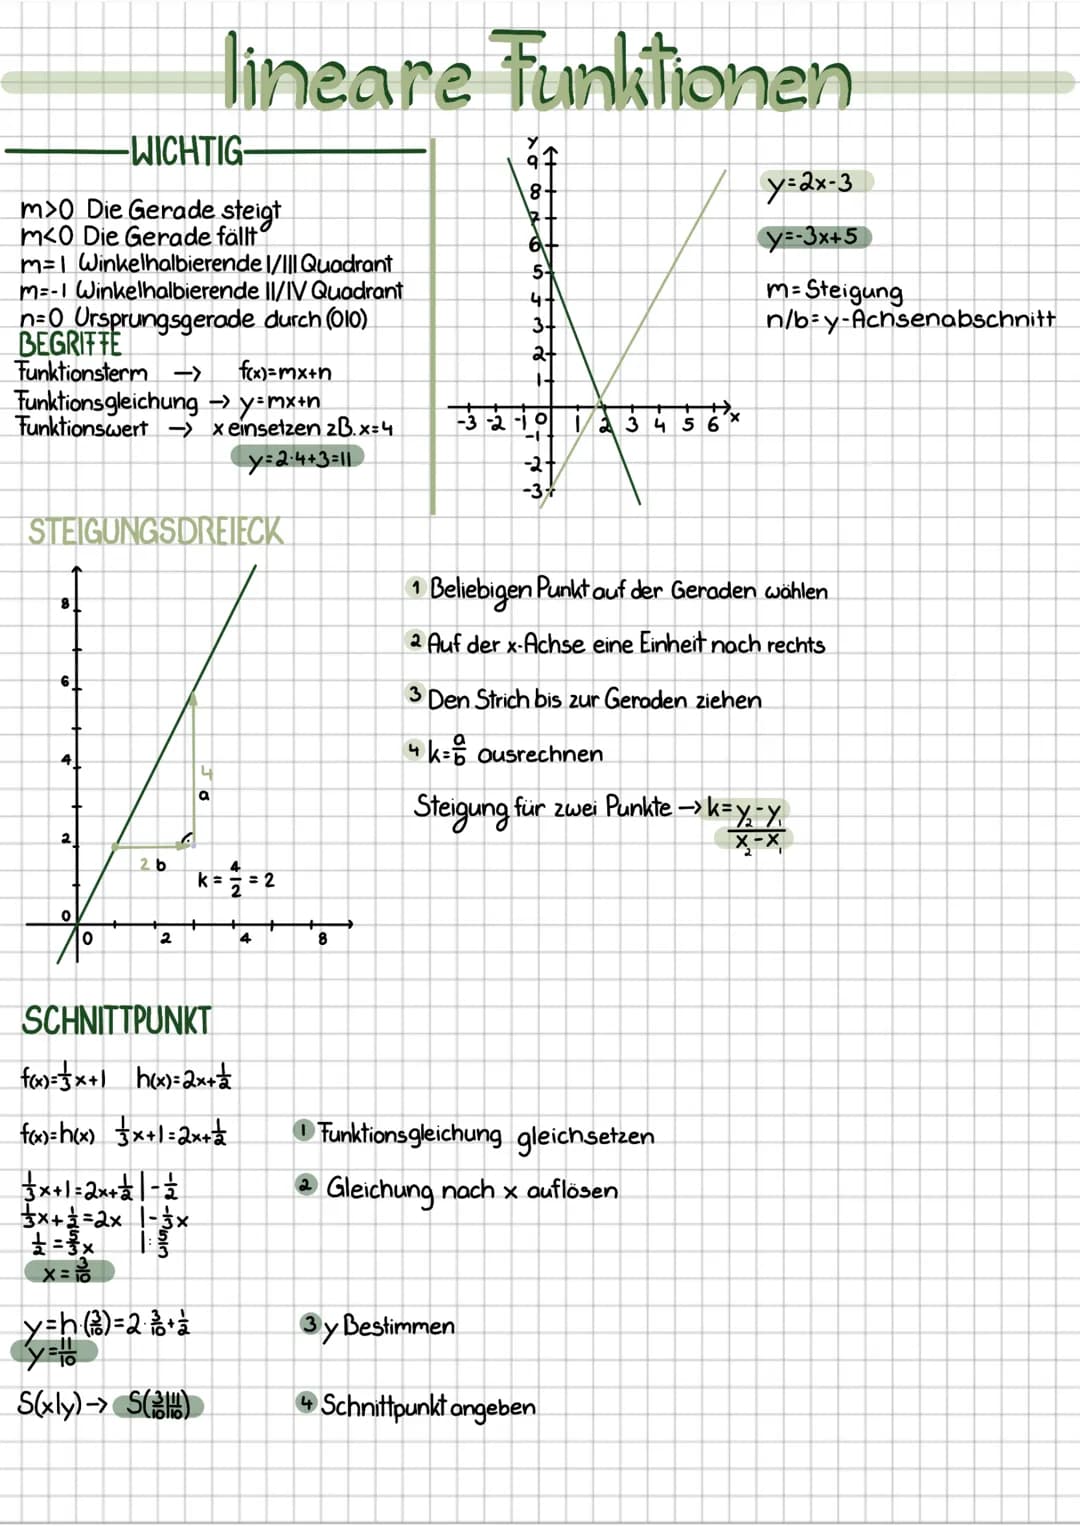 lineare Funktionen
WICHTIG
m>0 Die Gerade steigt
m<0 Die Gerade fällt
m=1 Winkelhalbierende I/III Quadrant
m=-1 Winkelhalbierende II/IV Quadrant
n=0 Ursprungsgerade durch (0|0)
BEGRIFFE
Funktionsterm → f(x)=mx+n
Funktionsgleichung → y=mx+n
Funktionswert → x einsetzen zB. x=4
y=2·4+3=11
y
9
8
7
6
5
4
3
2
1
-3 -2 -1 0 1 2 3 4 5 6 x
-1
-2
-3
y=2x-3
y=-3x+5
m=Steigung
n/b=y-Achsenabschnitt
STEIGUNGSDREIECK
8
6
4
2
0
0 2 4 8
4
a
2 b
k = 4/2 = 2
1 Beliebigen Punkt auf der Geraden wählen
2 Auf der x-Achse eine Einheit nach rechts
3 Den Strich bis zur Geraden ziehen
4 k=a/b ausrechnen
Steigung für zwei Punkte → k=y₂-y₁/x₂-x₁
SCHNITTPUNKT
f(x)=1/3x+1 h(x)=2x+1/2
f(x)=h(x) 1/3x+1=2x+1/2 1 Funktionsgleichung gleichsetzen
1/3x+1=2x+1/2 |-1/2 2 Gleichung nach x auflösen
1/3x+1/2=2x |-1/3x
1/2=5/3x |:5/3
x=3/10
y=h·(3/10)=2·3/10+1/2 3 y Bestimmen
y=11/10
S(x|y)→ S(3/10|11/10) 4 Schnittpunkt angeben